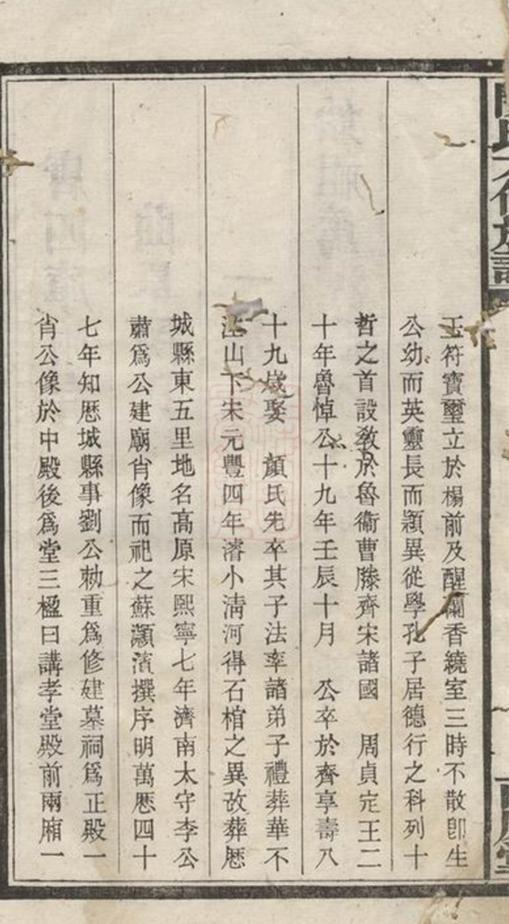 玉符寶璽立於榻前及醒蘭香繞室三時不散卽生
公幼而英靈長而穎異從學孔子居德行之科列十
哲之首設教於魯衞曹滕齊宋諸國　周貞定王二
十年魯悼公十九年壬辰十月　公卒於齊享壽八
十九歲娶　顏氏先卒其子法率諸弟子禮葬華不
注山下宋元豐四年濬小淸河得石棺之異改葬歴
城縣東五里地名高原宋熙寧七年濟南太守李公
肅爲公建廟肖像而祀之蘇潁濱撰序明萬歴四十
七年知歴城縣事劉公勅重爲修建墓祠爲正殿一
肖公像於中殿後爲堂三楹曰講孝堂殿前兩廂一